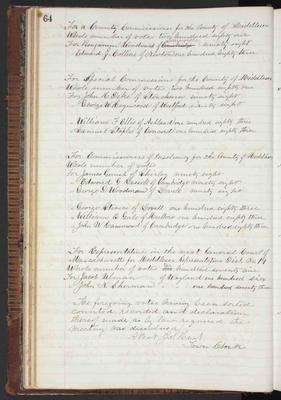 64
For a County Commissioner for the County of Middlesex
Whole number of votes two hundred eighty one
For Benjamin Woodward of Cambridge ninety eight
Edward J. Collins of Newton one hundred eighty three
For Special Commissioner for the County of Middlesex
Whole number of votes two hundred eighty one
For John C. of ninety eight
George W. of Westford ninety eight
William F. Ellis of Ashland one hundred eighty three
of Concord one hundred eighty three
For Commissioners of Insolvency for the County of Middlesex
Whole number of votes
For James of Shirley ninety eight
Edward of ninety eight
George Woodman of Lowell ninety six
George Stevens of Lowell one hundred eighty three
William B. Gale of one hundred eighty three
John W. Hammond of Cambridge one hundred eighty three
For Representative in the next General Court of
Massachusetts for Middlesex Representative Dist. No. 14
Whole number of votes two hundred seventy nine
For Jacob of Wayland one hundred
John N. Sherman " " one hundred seventy three
The foregoing votes having been sorted
counted recorded and declaration
thereof made as by law required the
meeting was dissolved
Attest
Town Clerk